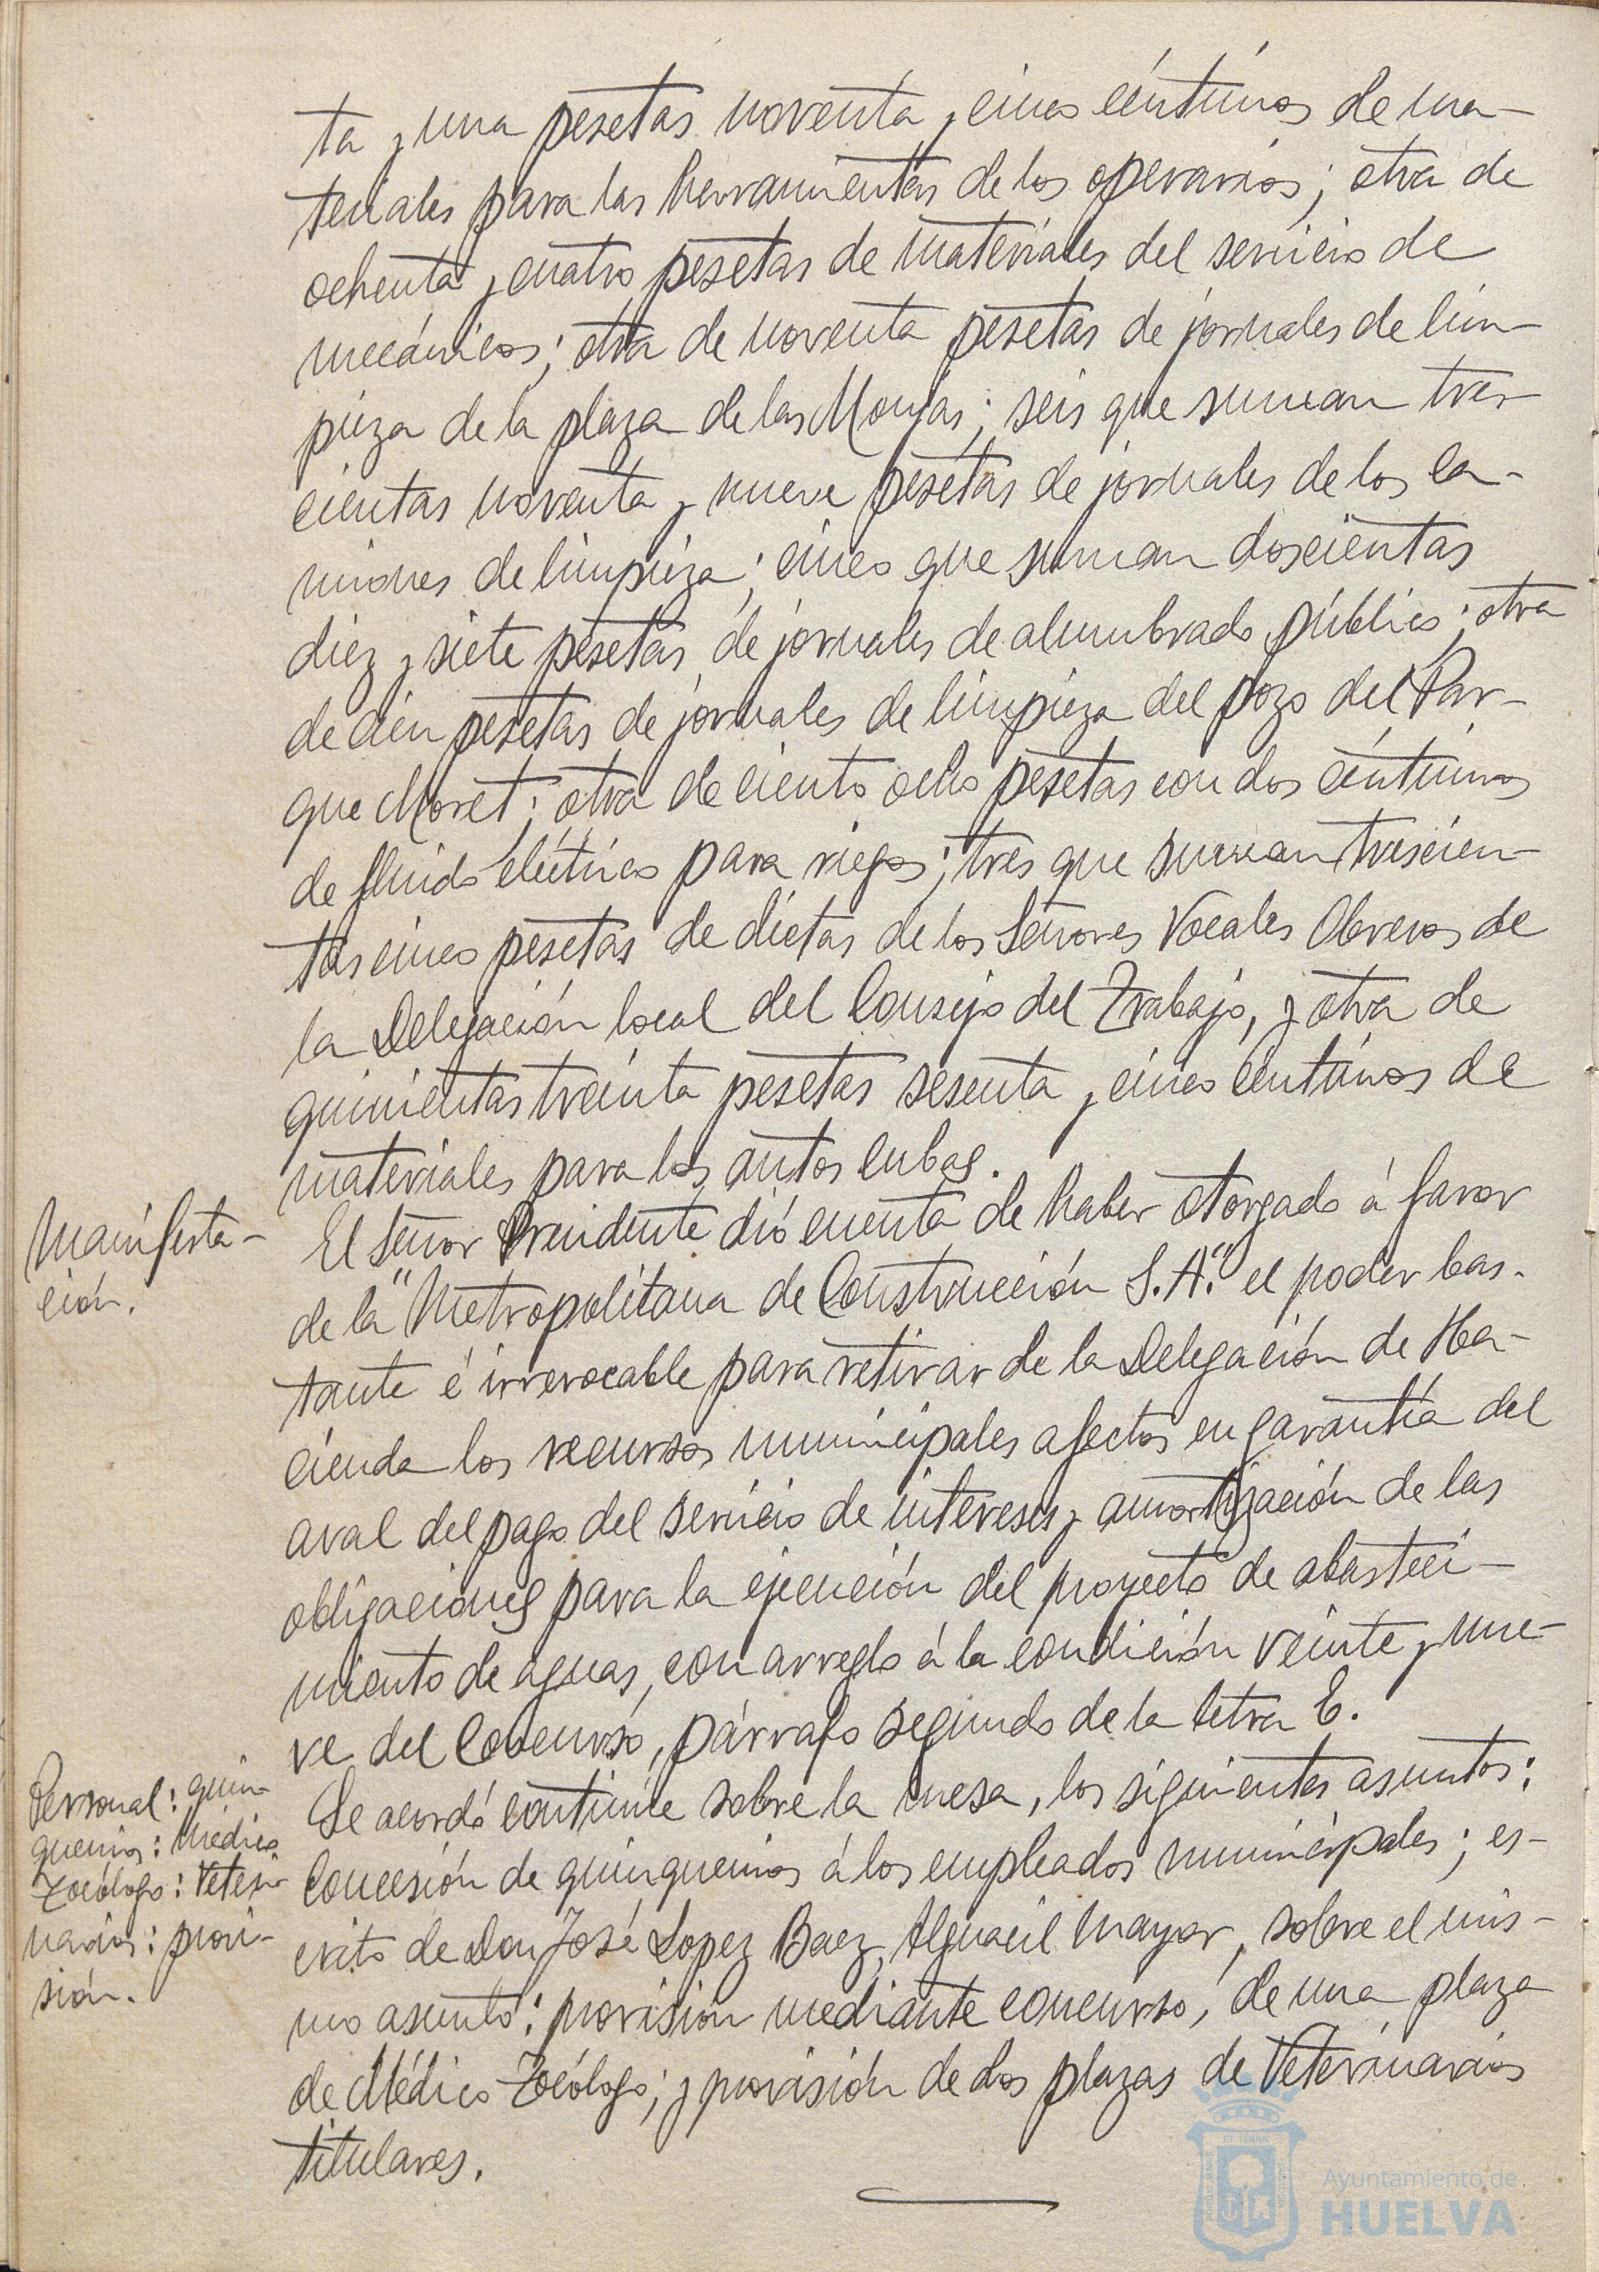 ta y una pesetas noventa y cinco céntimos de ma-
teriales para las herramientas de los operarios; otra de
ochenta y cuatro pesetas de materiales del servicio de
mecánicos; otra de noventa pesetas de jornales de lim-
pieza de la plaza de las Monjas; seis que suman tres-
cientas noventa y nueve pesetas de jornales de los ca-
miones de limpieza; cinco que suman doscientas
diez y siete pesetas de jornales de alumbrado público; otra
de cien pesetas de jornales de limpieza del pozo del Par-
que Moret; otra de ciento ocho pesetas con dos céntimos
de fluido eléctrico para riegos; tres que suman trescien-
tas cinco pesetas de dietas de los Señores Vocales Obreros de
la Delegación local del Consejo del Trabajo, y otra de
quinientas treinta pesetas sesenta y cinco céntimos de
materiales para los autos cubas.
Manifesta-
ción.
El Señor Presidente dió cuenta de haber otorgado á favor
de la "Metropolitana de Construcción S.A." el poder bas-
tante é irrevocable para retirar de la Delegación de Ha-
cienda los recursos municipales afectos en garantía del
aval del pago del servicio de intereses y amortización de las
obligaciones para la ejecución del proyecto de abasteci-
miento de aguas, con arreglo á la condición veinte y nue-
ve del Concurso, párrafo segundo de la letra E.
Personal: quin-
quenios: Médico
Zoólogo: Veteri-
narios: provi-
sión.
Se acordó continúe sobre la mesa, los siguientes asuntos:
Concesión de quinquenios á los empleados municipales; es-
crito de Don José Lopez Baez, Alguacil Mayor, sobre el mis-
mo asunto: provisión mediante concurso, de una plaza
de Médico Zoólogo; y provisión de dos plazas de Veterinarios
titulares.
Ayuntamiento de
HUELVA